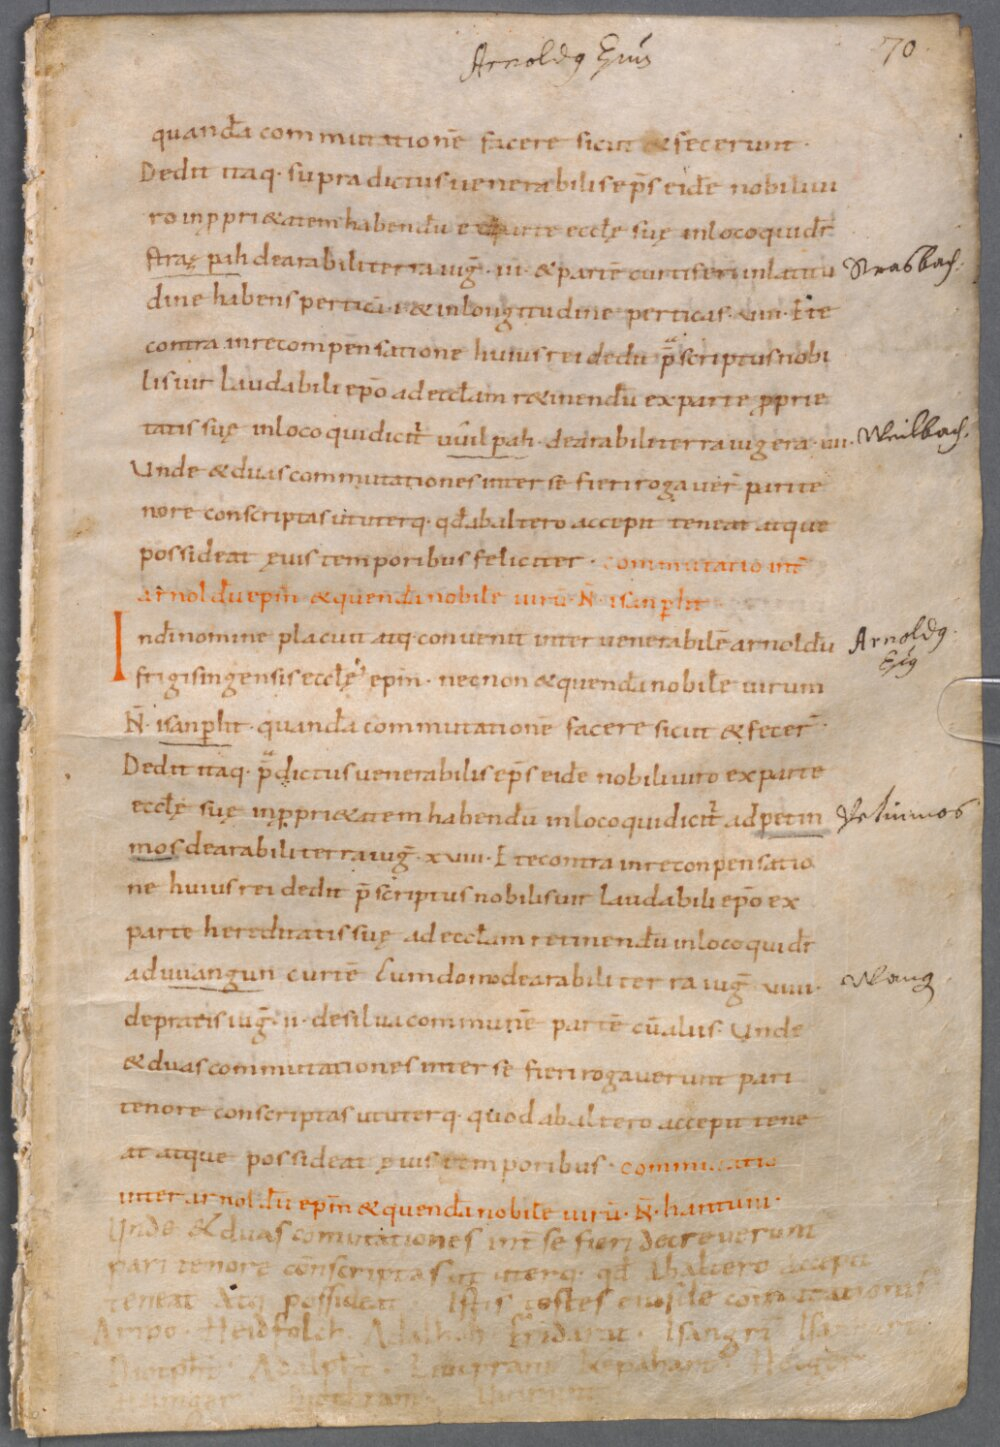 Arnoldꝯ Epūs
70
quandā commutationē facere sicut & fecerunt ·
Dedit itaq· supradictus uenerabilis ep̄s eidē nobili uiu
ro in ꝓpri&atem habendū ex parte ecclę suę in loco qui dr̄
straz pah de arabili terra iug̃ · iii · & partē curtiferi in latitu
dine habens perticā · i · & in longitudine perticas · xiiii · Ete
contra in recompensatione huius rei dedit p̄scriptus nobi
lis uir laudabili ep̄o ad ecclam r&inendū ex parte ꝓprie
tatis suę in loco qui dicit̄ uuil pah · de arabili terra iugera · iiii ·
Unde & duas commutationes inter se fieri rogauer̄ pari te
nore conscriptas ut uterq· qd̄ ab altero accepit teneat atque
possideat ęuis temporibus feliciter · commutatio int̄
arnoldū epm̄ & quendā nobilē uirū · N̄ · isanp̄ht
Ind̄i nomine placuit atq· conuenit inter uenerabilē arnoldū
frigisingensis ecclę epm̄ · necnon & quendā nobilē uirum
N̄ · isanp̄ht · quandā commutationē facere sicut & fecer̄ ·
Dedit itaq· p̄dictus uenerabilis ep̄s eidē nobili uiro ex parte
ecclę suę in ꝓpri&atem habendū in loco qui dicit̄ ad petin
mos de arabili terra iug̃ · xviii · E te contra in reconpensatio
ne huius rei dedit p̄scriptus nobilis uir laudabili ep̄o ex
parte hereditatis suę ad ecclam retinendū in loco qui dr̄
ad uuangun curtē cum domo de arabili terra iug̃ xviii ·
de pratis iug̃ · ii · de silua commune partē cū aliis · Unde
& duas commutationes inter se fieri rogauerunt pari
tenore conscriptas ut uterq· quod ab altero accepit tene
at atque possideat ęuis temporibus · commutatio
inter arnoldū epm̄ & quendā nobilē uirū · N̄ · hartuni ·
Unde & duas comutationes int̄ se fieri decreuerunt
pari tenore conscriptas ut uterq· qd̄ ab altero accepit
teneat atq· possideat · Istis testes eiusdē comutationis
Aripo · Heidfolch · Adalhoh · Fridarat · Isangrī
Adalp̄ht · Liutprant Kepahart
Strasbach.
Weilbach.
Arnoldꝯ
Epꝯ
Petinmos
Wang